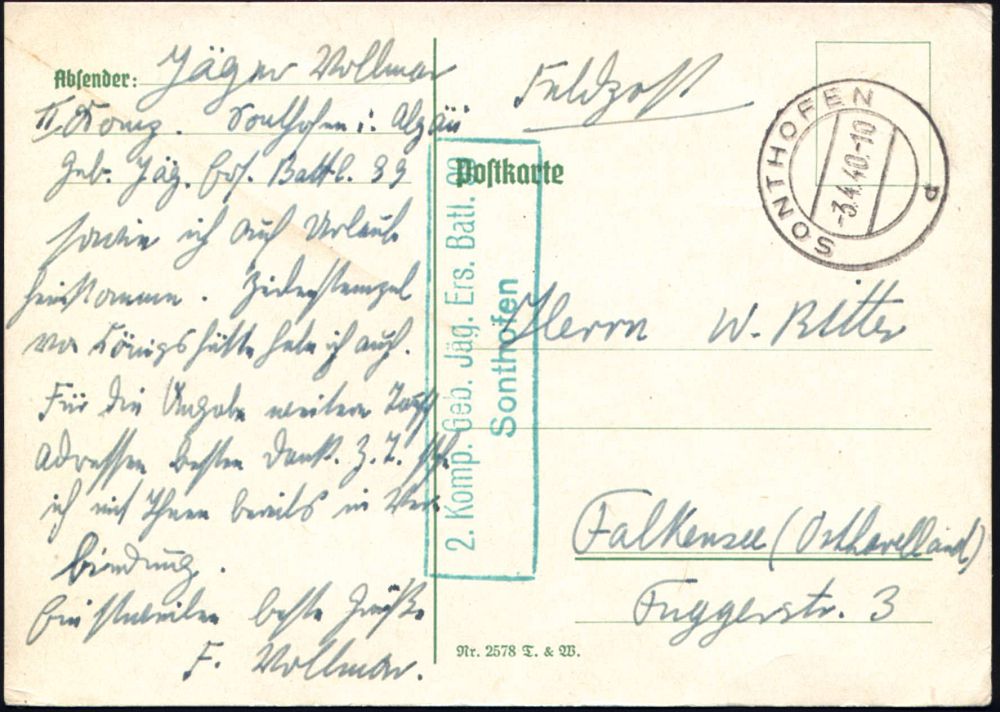 Absender: Jäger Vollmar
II. Komp. Sonthofen i. Algäu
Geb. Jäg. Ers. Battl. 99
sowie ich auf Urlaub
heimkomme.
von Königshütte habe ich auch.
Für die Angabe weiterer Tausch
adressen besten Dank. Z. T. stehe
ich mit Ihnen bereits in Ver
bindung.
Einstweilen beste Grüße
F. Vollmar.
Feldpost
Postkarte
SONTHOFEN
-3.4.40.-10
b
2. Komp. Geb. Jäg. Ers. Batl. 99
Sonthofen
Herrn W. Ritter
Falkensee (Osthavelland)
Fuggerstr. 3
Nr. 2578 T. & W.